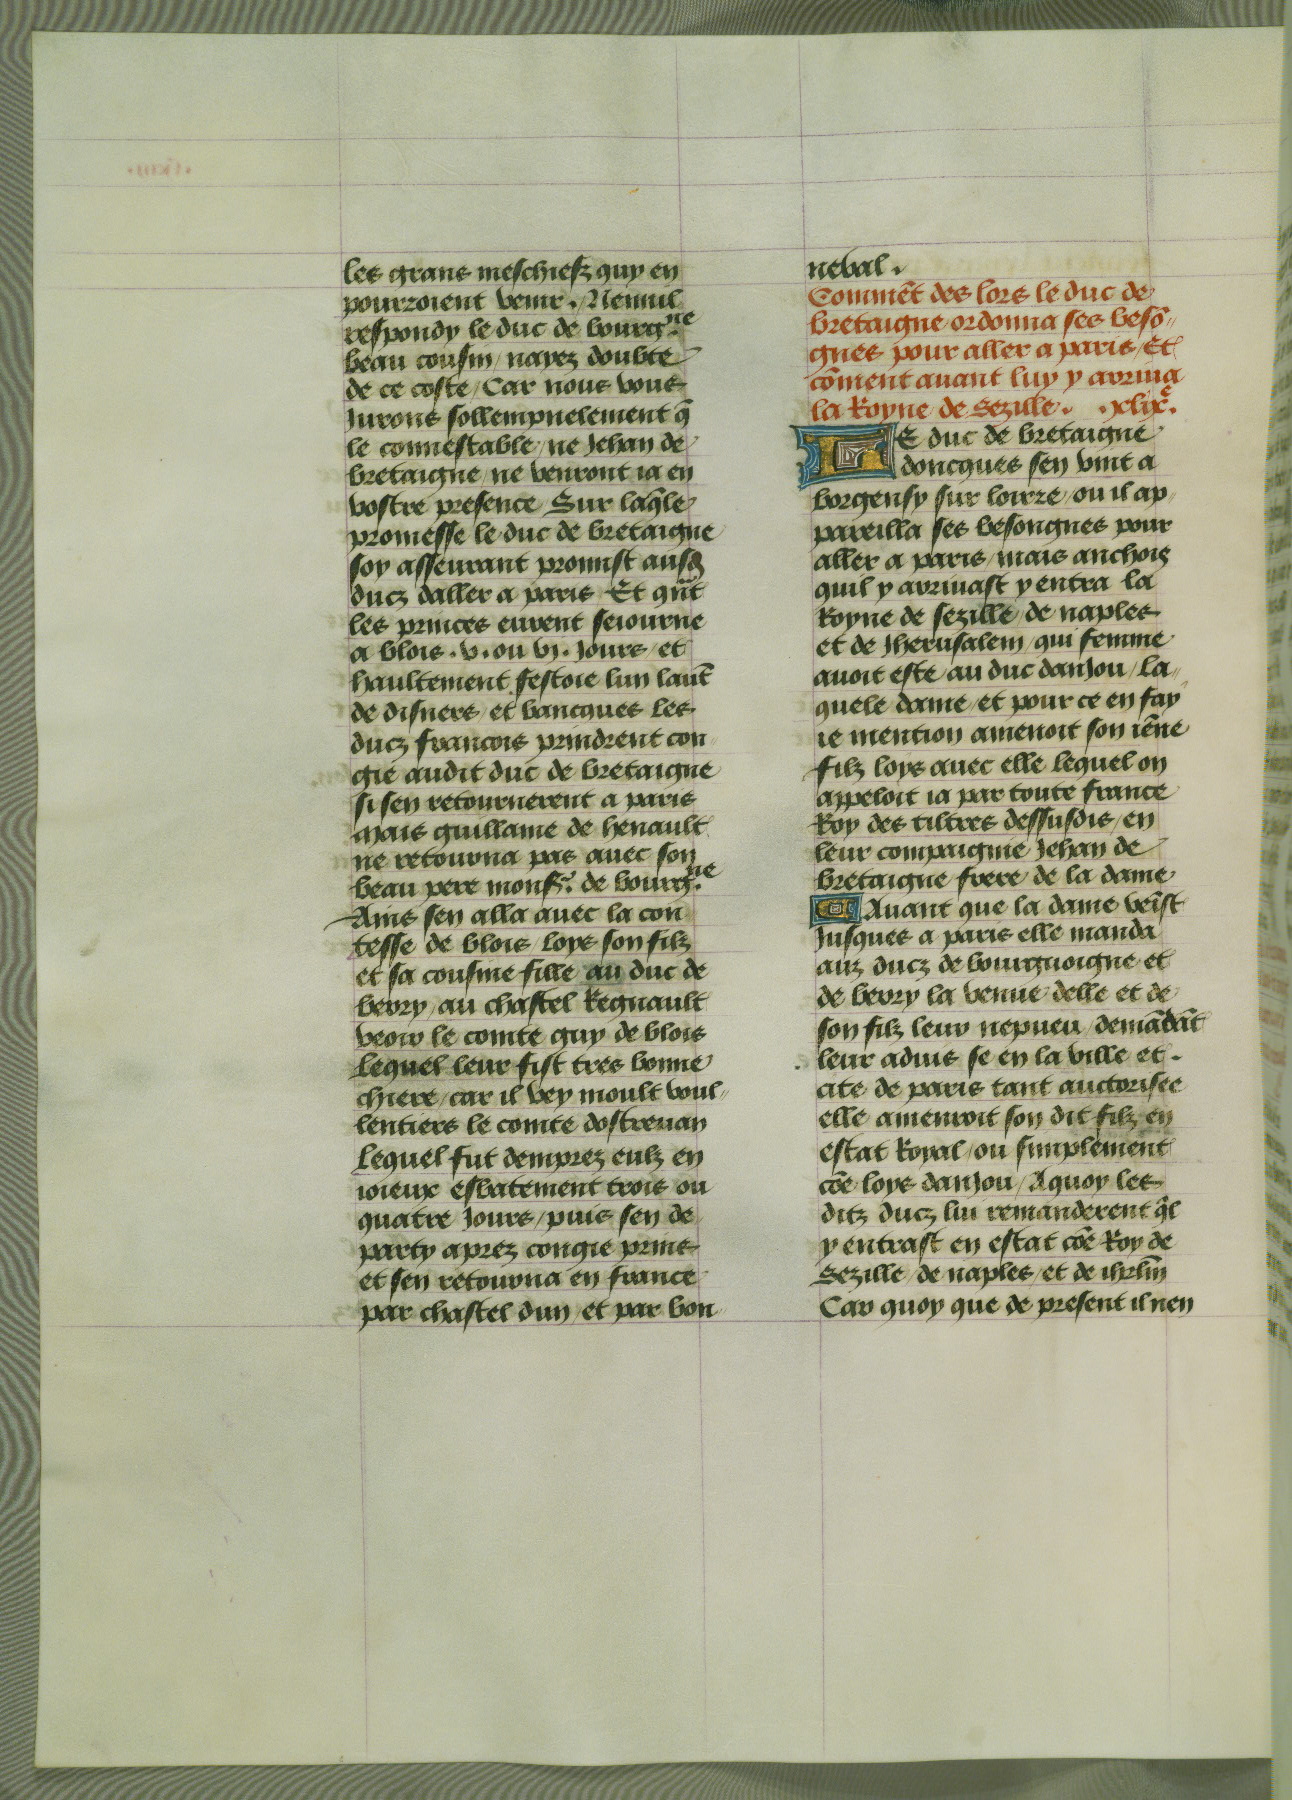 les grans meschiefz quy en
pourroient venir . Nennil
respondy le duc de bourg.ne
beau cousin / nayez doubte
de ce coste / Car nous vous
Jurons sollempnelement q̃
le connestable / ne Jehan de
bretaigne / ne venront ia en
vostre presence / Sur laq̃le
promesse le duc de bretaigne
soy asseurant promist ausd̾
ducz daller a paris Et qu͠t
les princes eurent seiourne
a blois .v. ou vj. Jours / et
haultement festoie lun laut̃
de disners / et bancques les
ducz francois prindrent con
gie audit duc de bretaigne
si sen retournerent a paris
Mais guillame de henault
ne retourna pas avec son
beau pere monsr. de bourg.ne
Ains sen alla avec la con
tesse de blois / loys son filz
et sa cousine fille au duc de
berry / au chastel Regnault
veoir le comte guy de blois
Lequel leur fist tres bonne
chiere / car il vey moult voul-
lentiers le comte dostrevan
Lequel fut demprez eulz en
ioieux esbatement trois ou
quatre Jours / puis sen de
party aprez congie prins
et sen retourna en france
par chastel dun / et par bon
neval .
Commẽt des lors le duc de
bretaigne ordonna ses besõ-
gnes pour aller a paris / Et
cõment avant luy y arriva
la Royne de Sezille . .xlixe.
LE duc de bretaigne
doncques sen vint a
borgensy sur loirre / ou il ap-
pareilla ses besongnes pour
aller a paris / mais anchois
quil y arrivast y entra la
Royne de sezille / de naples
et de Jherusalem / qui femme
avoit este au duc danJou / la-
quele dame / et pour ce en fay
ie mention amenoit son iẽne
filz loys avec elle lequel on
appeloit ia par toute france
Roy des tiltres dessusdis / en
leur compaignie Jehan de
bretaigne frere de la dame
Avant que la dame veĩst
Jusques a paris elle manda
aux ducz de bourguoigne et
de berry la venue delle et de
son filz leur nepueu / demãdãt
leur aduis se en la ville et .
cite de paris tant auctorisee
elle amenroit son dit filz en
estat Royal / ou simplement
cõe loys danJou / A quoy les
ditz ducz lui remanderent q̃l
y entrast en estat cõe Roy de
Sezille / de naples / et de ihrlm̃
Car quoy que de present il nen